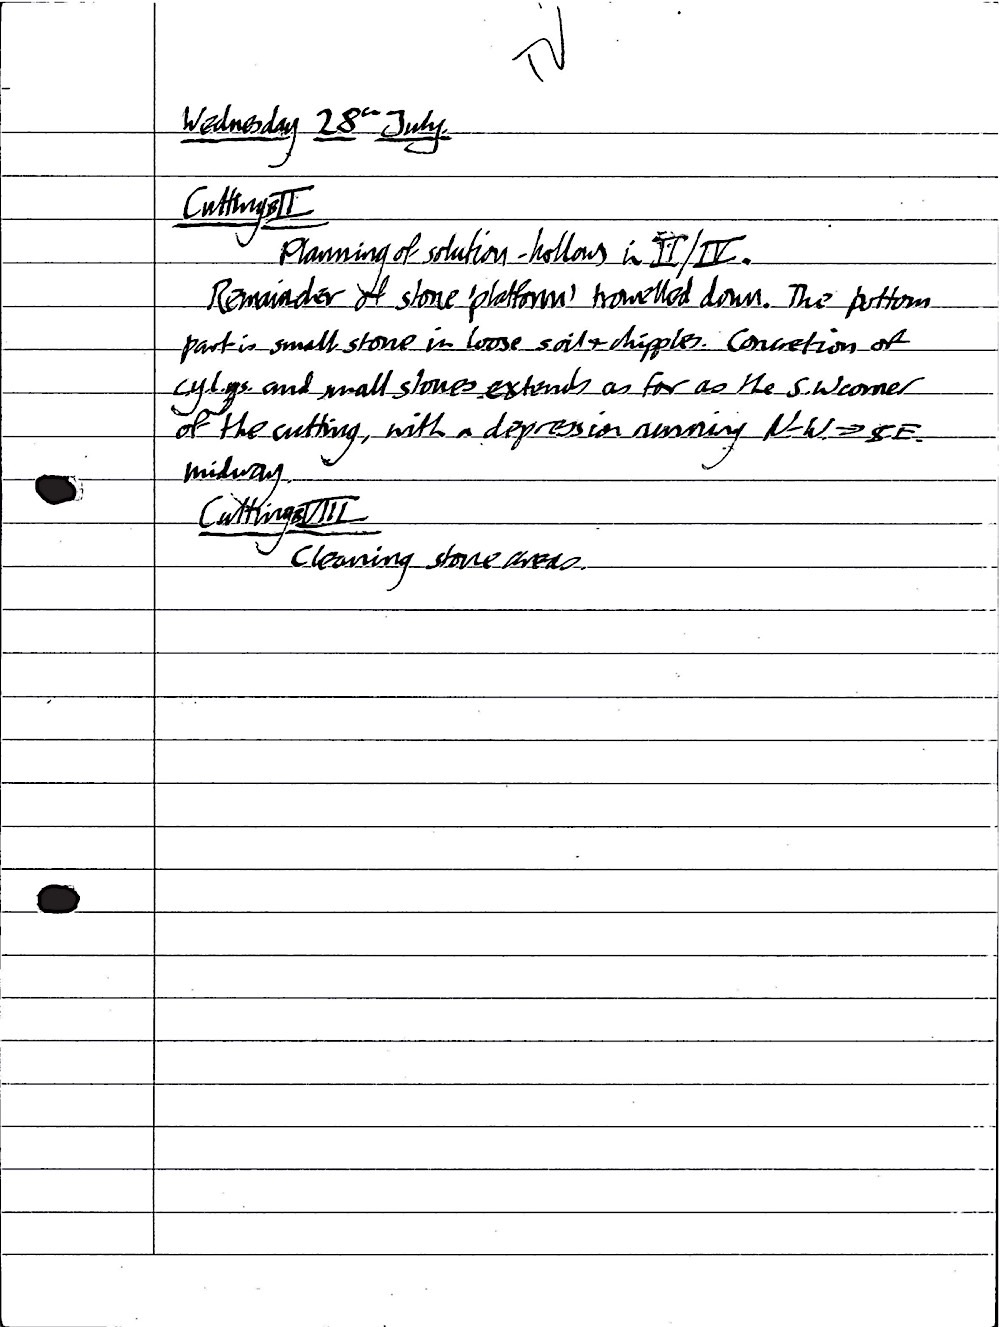 IV
Wednesday 28th July.
Cutting II
Planning of solution-hollows in II/IV.
Remainder of stone 'platform' trowelled down. The bottom
part is small stone in loose soil + chipples. Concretion of
and small stones extends as far as the S.W corner
of the cutting, with a depression running N-W. → SE.
midway.
Cutting VIII
Cleaning stone areas.